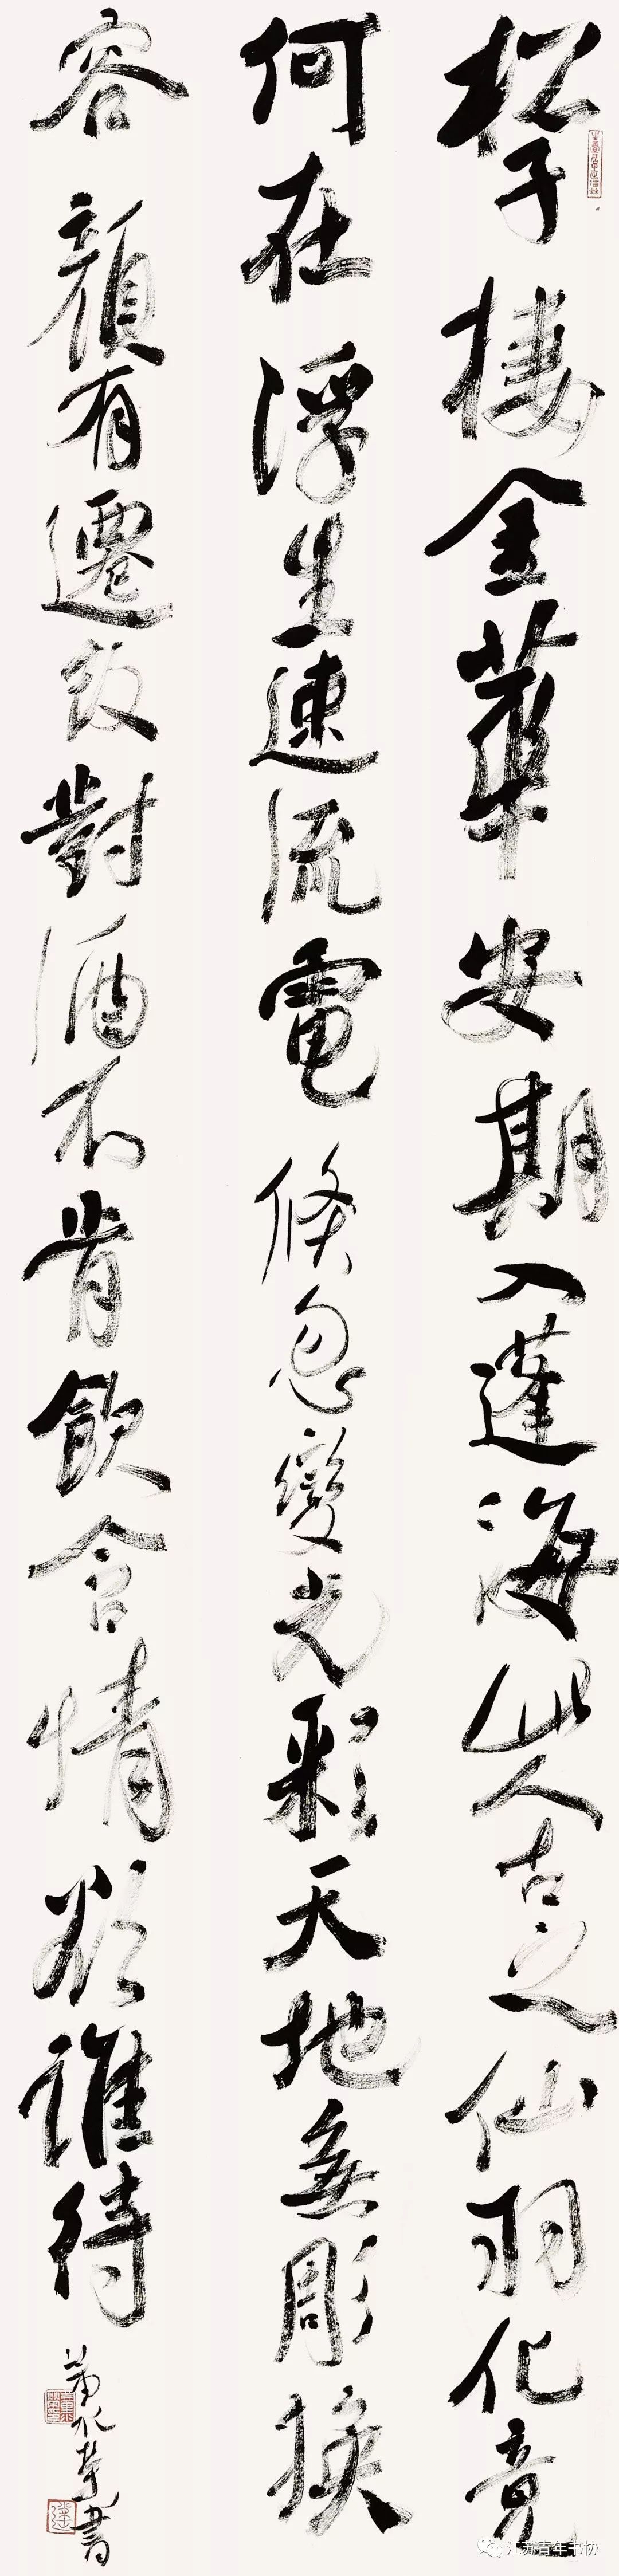 松子棲金華安期入蓬海此人古之仙羽化竟
何在浮生速流電倏忽變光彩天地無彫換
容顏有遷改對酒不肯飲含情欲誰待
董水榮書
江苏青年书协